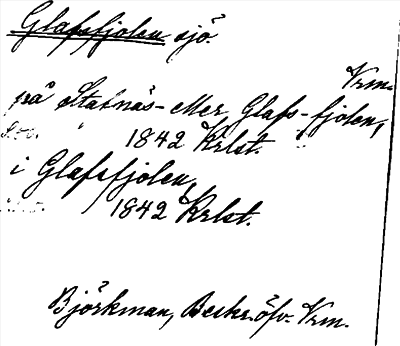 Glafsfjolen sjö.
Vrm.
på Stafnäs- eller Glafs-fjolen,
1842 Krlst.
i Glafsfjolen,
1842 Krlst.
Björkman, Beskr. öfv. Vrm.